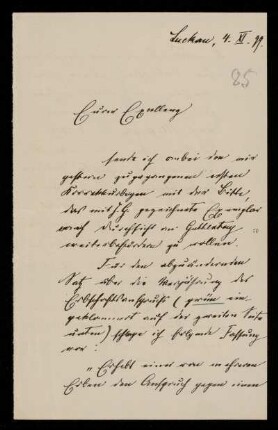 Luckau, 4. XI. 99.
25
Eurer Excellenz
sende ich anbei den mir
gestern zugegangenen ersten
Korrekturbogen mit der Bitte,
das mit J. G. gezeichnete Exemplar
nach Durchsicht an Guttentag
weiterbefördern zu wollen.
Für den abzuändernden
Satz über die Verjährung des
Erbschaftsanspruchs (grün ein-
geklammert auf der zweiten Seite
unten) schlage ich folgende Fassung
vor:
„Erhebt einer von mehreren
Erben den Anspruch gegen einen